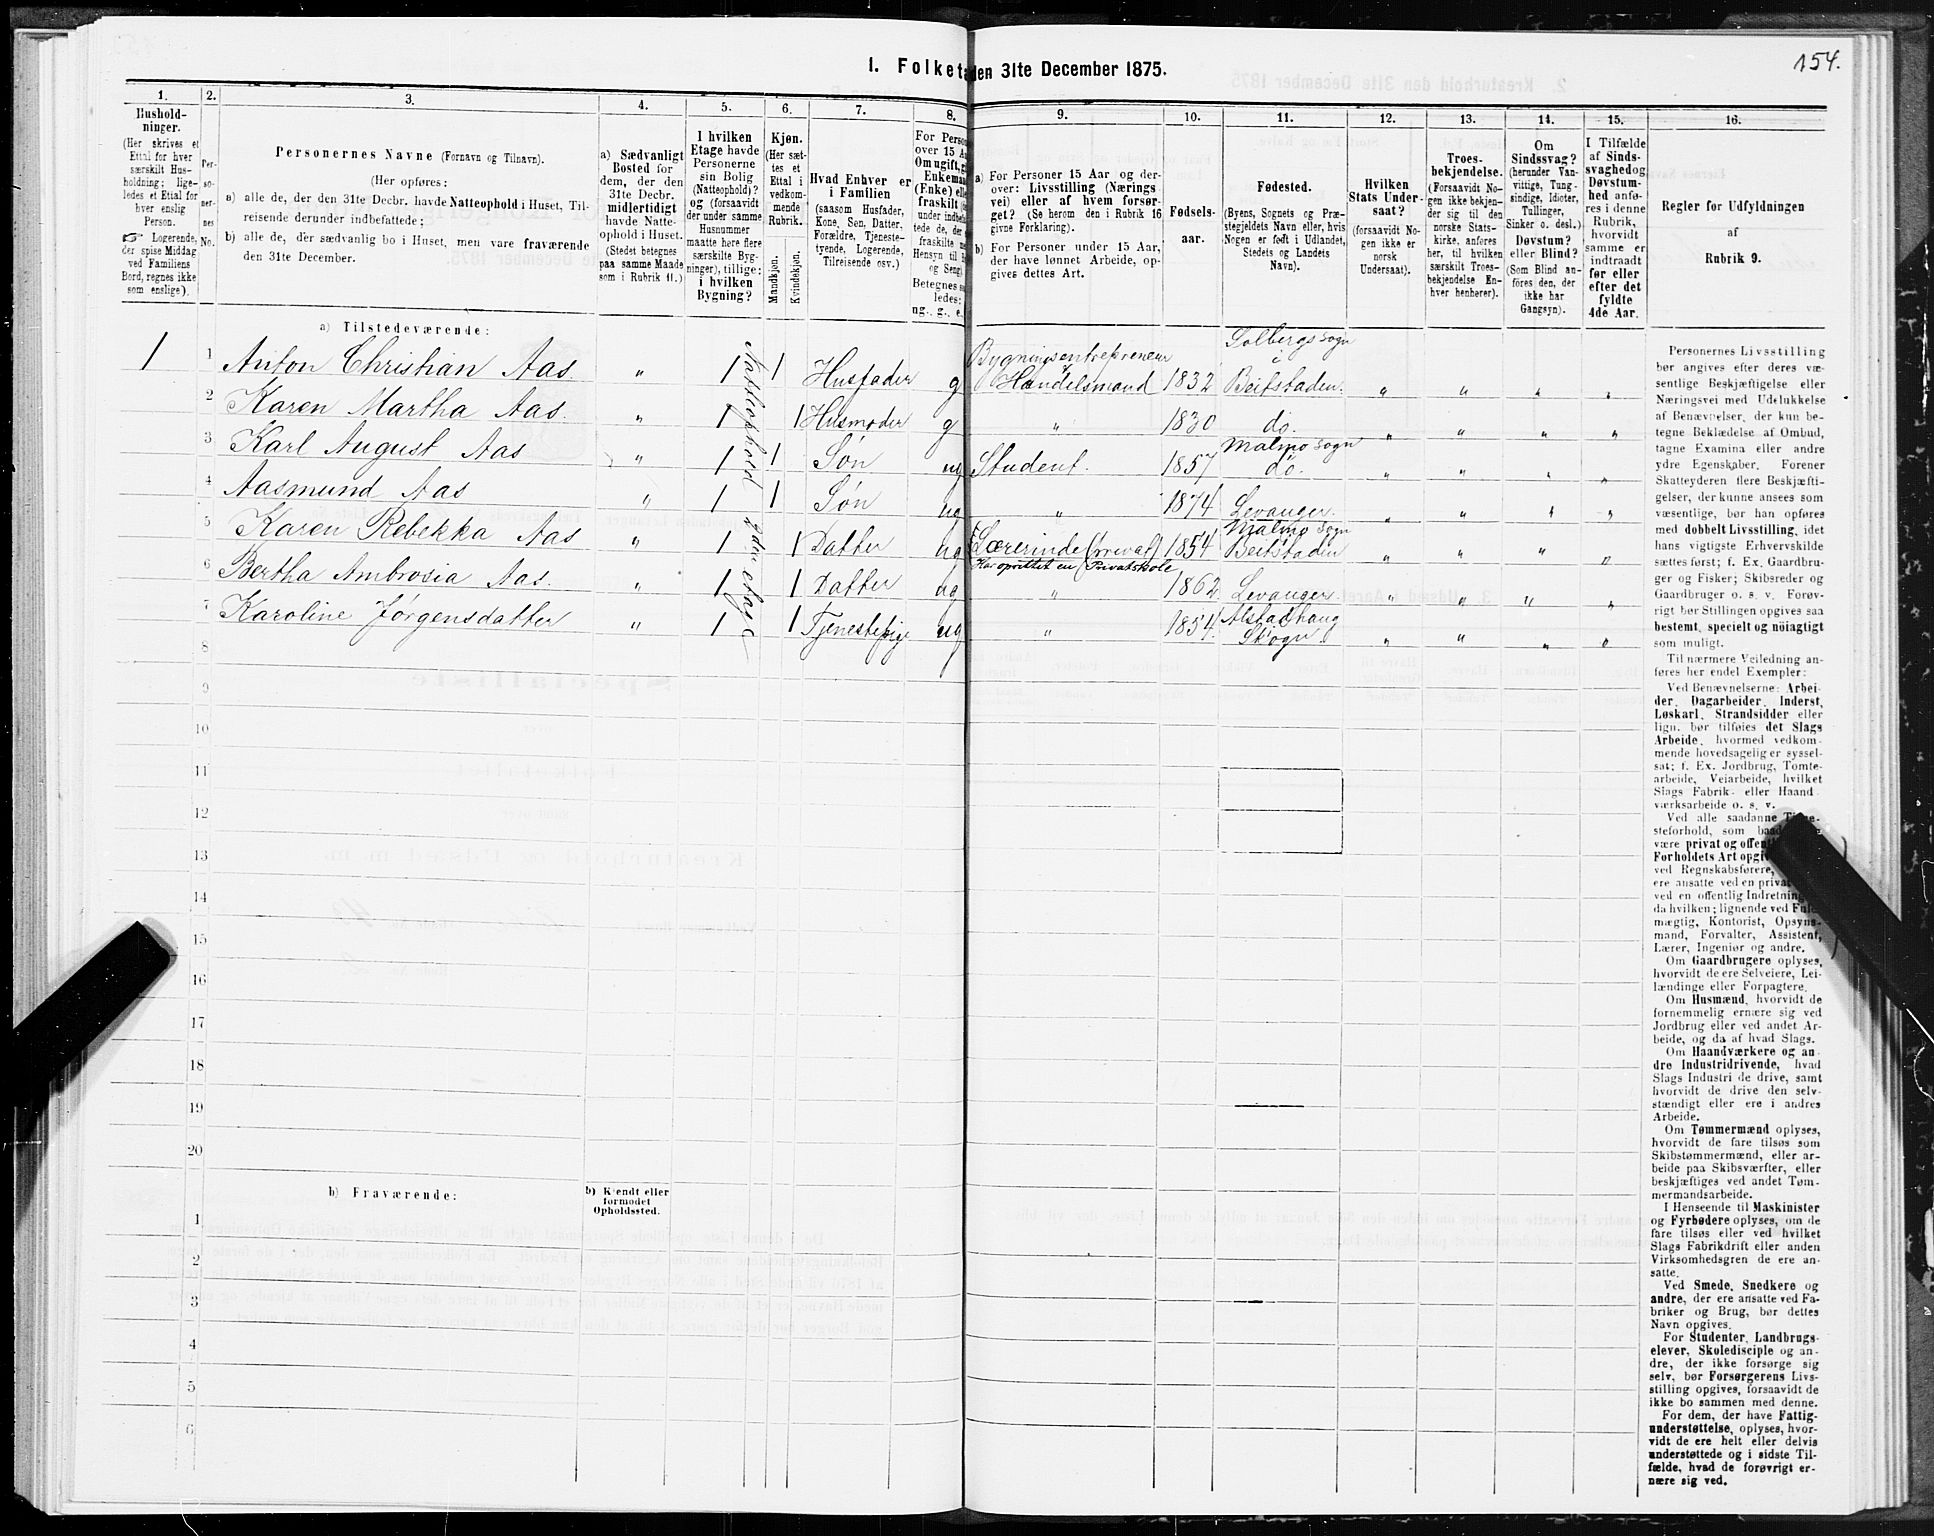 154.
I. Folketa
den 31te December 1875.
1.
2.
3.
4.
5.
6.
7.
8.
9.
10.
11.
12.
13.
14.
15.
16.
Hushold-
ninger.
(Her skrives et
Ettal for hver
særskilt Hus-
holdning; lige-
ledes et Ettal for
hver enslig
Person.
☞ Logerende,
der spise Middag
ved Familiens
Bord, regnes ikke
som enslige).
Per-
so-
ner-
nes
No.
Personernes Navne (Fornavn og Tilnavn).
(Her opføres:
a) alle de, der den 31te Decbr. havde Natteophold i Huset, Til-
reisende derunder indbefattede;
b) alle de, der sædvanlig bo i Huset, men vare fraværende
den 31te December.
a) Sædvanligt
Bosted for
dem, der den
31te Decbr.
midlertidigt
havde Natte-
ophold i Huset.
(Stedet betegnes
paa samme Maade
som i Rubrik 11.)
I hvilken
Etage havde
Personerne
sin Bolig
(Natteophold)?
og (forsaavidt
der under samme
Husnummer
maatte høre flere
særskilte Byg-
ninger), tillige:
i hvilken
Bygning?
Kjøn.
(Her sæt-
tes et
Ettal i
vedkom-
mende
Rubrik.
Mandkjøn.
Kvindekjøn.
Hvad Enhver er
i Familien
(saasom Husfader,
Kone, Søn, Datter,
Forældre, Tjeneste-
tyende, Logerende,
Tilreisende osv.)
For Perso
over 15 Aa
Om ugift, gi
Enkeman
(Enke) elle
fraskilt (
under indbef
tede de, der
fraskilte m
Hensyn til B
og Seng).
Betegnes saa
ledes:
ng., g., e.
a) For Personer 15 Aar og der-
over: Livsstilling (Nærings
vei) eller af hvem forsør-
get? (Se herom den i Rubrik 16
givne Forklaring).
b) For Personer under 15 Aar,
der have lønnet Arbeide, op-
gives dettes Art.
Fødsels-
aar.
Fødested.
(Byens, Sognets og Præ-
stegjeldets Navn eller, hvis
Nogen er født i Udlandet,
Stedets og Landets
Navn).
Hvilken
Stats Under-
saat?
(forsaavidt No-
gen ikke er
norsk
Undersaat).
Troes-
bekjendelse.
(Forsaavidt No-
gen ikke bekjen-
der sig til den
norske Stats-
kirke, anføres
her, til hvilken
særskilt Troes-
bekjendelse En-
hver henhører).
Om
Sindssvag?
(herunder Van-
vittige, Tung-
sindige, Idioter,
Tullinger,
Sinker o. desl.)
Døvstum?
eller Blind?
(Som Blind an-
føres den, der
ikke har
Gangsyn).
I Tilfælde
af Sinds-
svaghed og
Døvstum-
hed anfø-
res i denne
Rubrik,
hvorvidt
samme er
indtraadt
før eller
efter det
fyldte
4de Aar.
Regler for Udfyldningen
af
Rubrik 9.
a) Tilstedeværende:
Natteophold 2den etage
1 1 Anton Christian Aas. " 1 1 Husfader g Bygningsentrepreneur & Handelsmand 1832 Solberg Sogn i Beitstaden. " " " "
2 Karen Martha Aas. " 1 1 Husmoder g " 1830 do. " " " "
3 Karl August Aas " 1 1 Søn ug Student. 1857 Malmo Sogn do. " " " "
4 Aasmund Aas " 1 1 Søn ug " 1874 Levanger. " " " "
5 Karen Rebekka Aas " 1 1 Datter ug Lærerinde (privat) Har oprettet en Privatskole 1854 Malmo Sogn Beitstaden " " " "
6 Bertha Ambrosia Aas. " 1 1 Datter ug " 1862 Levanger. " " " "
7 Karoline Jørgensdatter " 1 1 Tjenestepige ug " 1854. Alstadhaug Skogn " " " "
8
9
10
11
12
13
14
15
16
17
18
19
20
b) Fraværende:
b) Kjendt eller
formodet
Opholdssted.
1
2
3
4
5
6
Personernes Livsstilling
bør angives efter deres væ-
sentlige Beskjæftigelse eller
Næringsvei med Udelukkelse
af Benævnelser, der kun be-
tegne Beklædelse af Ombud,
tagne Examina eller andre
ydre Egenskaber. Forener
Skatteyderen flere Beskjæfti-
gelser, der kunne ansees som
væsentlige, bør han opføres
med dobbelt Livsstilling, idet
hans vigtigste Erhvervskilde
sættes først; f. Ex. Gaardbru-
ger og Fisker; Skibsreder og
Gaardbruger o. s. v. Forøv-
rigt bør Stillingen opgives saa
bestemt, specielt og nöiagtigt
som muligt.
Til nærmere Veiledning an-
føres her endel Exempler:
Ved Benævnelserne: Arbei-
der, Dagarbeider, Inderst,
Løskarl, Strandsidder eller
lign. bør tilføies det Slags
Arbeide, hvormed vedkom-
mende hovedsagelig er syssel-
sat; f. Ex. Jordbrug, Tomte-
arbeide, Veiarbeide, hvilket
Slags Fabrik- eller Haand
værksarbeide o. s. v.
Ved alle saadanne
steforhold, som
være privat og
Forholdets Art
ved Regnskabsførere,
ere ansatte ved en
ved en offentlig Indretning
da hvilken; lignende ved
mægtig, Kontorist, Opsyns-
mand, Forvalter, Assistent,
Lærer, Ingeniør og andre.
Om Gaardbrugere oplyses,
hvorvidt de ere Selveiere, Lei-
lændinge eller Forpagtere.
Om Husmænd, hvorvidt de
fornemmelig ernære sig ved
Jordbrug eller ved andet Ar-
beide, og da af hvad Slags.
Om Haandværkere og an-
dre Industridrivende, hvad
Slags Industri de drive, samt
hvorvidt de drive den selv-
stændigt eller ere i andres
Arbeide.
Om Tømmermænd oplyses,
hvorvidt de fare tilsøs som
Skibstømmermænd, eller ar-
beide paa Skibsværfter, eller
beskjæftiges ved andet Tøm-
mermandsarbeide.
I Henseende til Maskinister
og Fyrbødere oplyses, om de
fare tilsøs eller ved hvilket
Slags Fabrikdrift eller anden
Virksomhedsgren de ere an-
satte.
Ved Smede, Snedkere og
andre, der ere ansatte ved Fa-
briker og Brug, bør dettes
Navn opgives.
For Studenter, Landbrugs-
elever, Skoledisciple og an-
dre, der ikke forsørge sig
selv, bør Forsørgerens Livs-
stilling opgives, forsaavidt de
ikke bo sammen med denne.
For dem, der have Fattig-
understøttelse, oplyses, hvor-
vidt de ere helt eller delvis
understøttede og i sidste Til-
fælde, hvad de forøvrigt er-
nære sig ved.